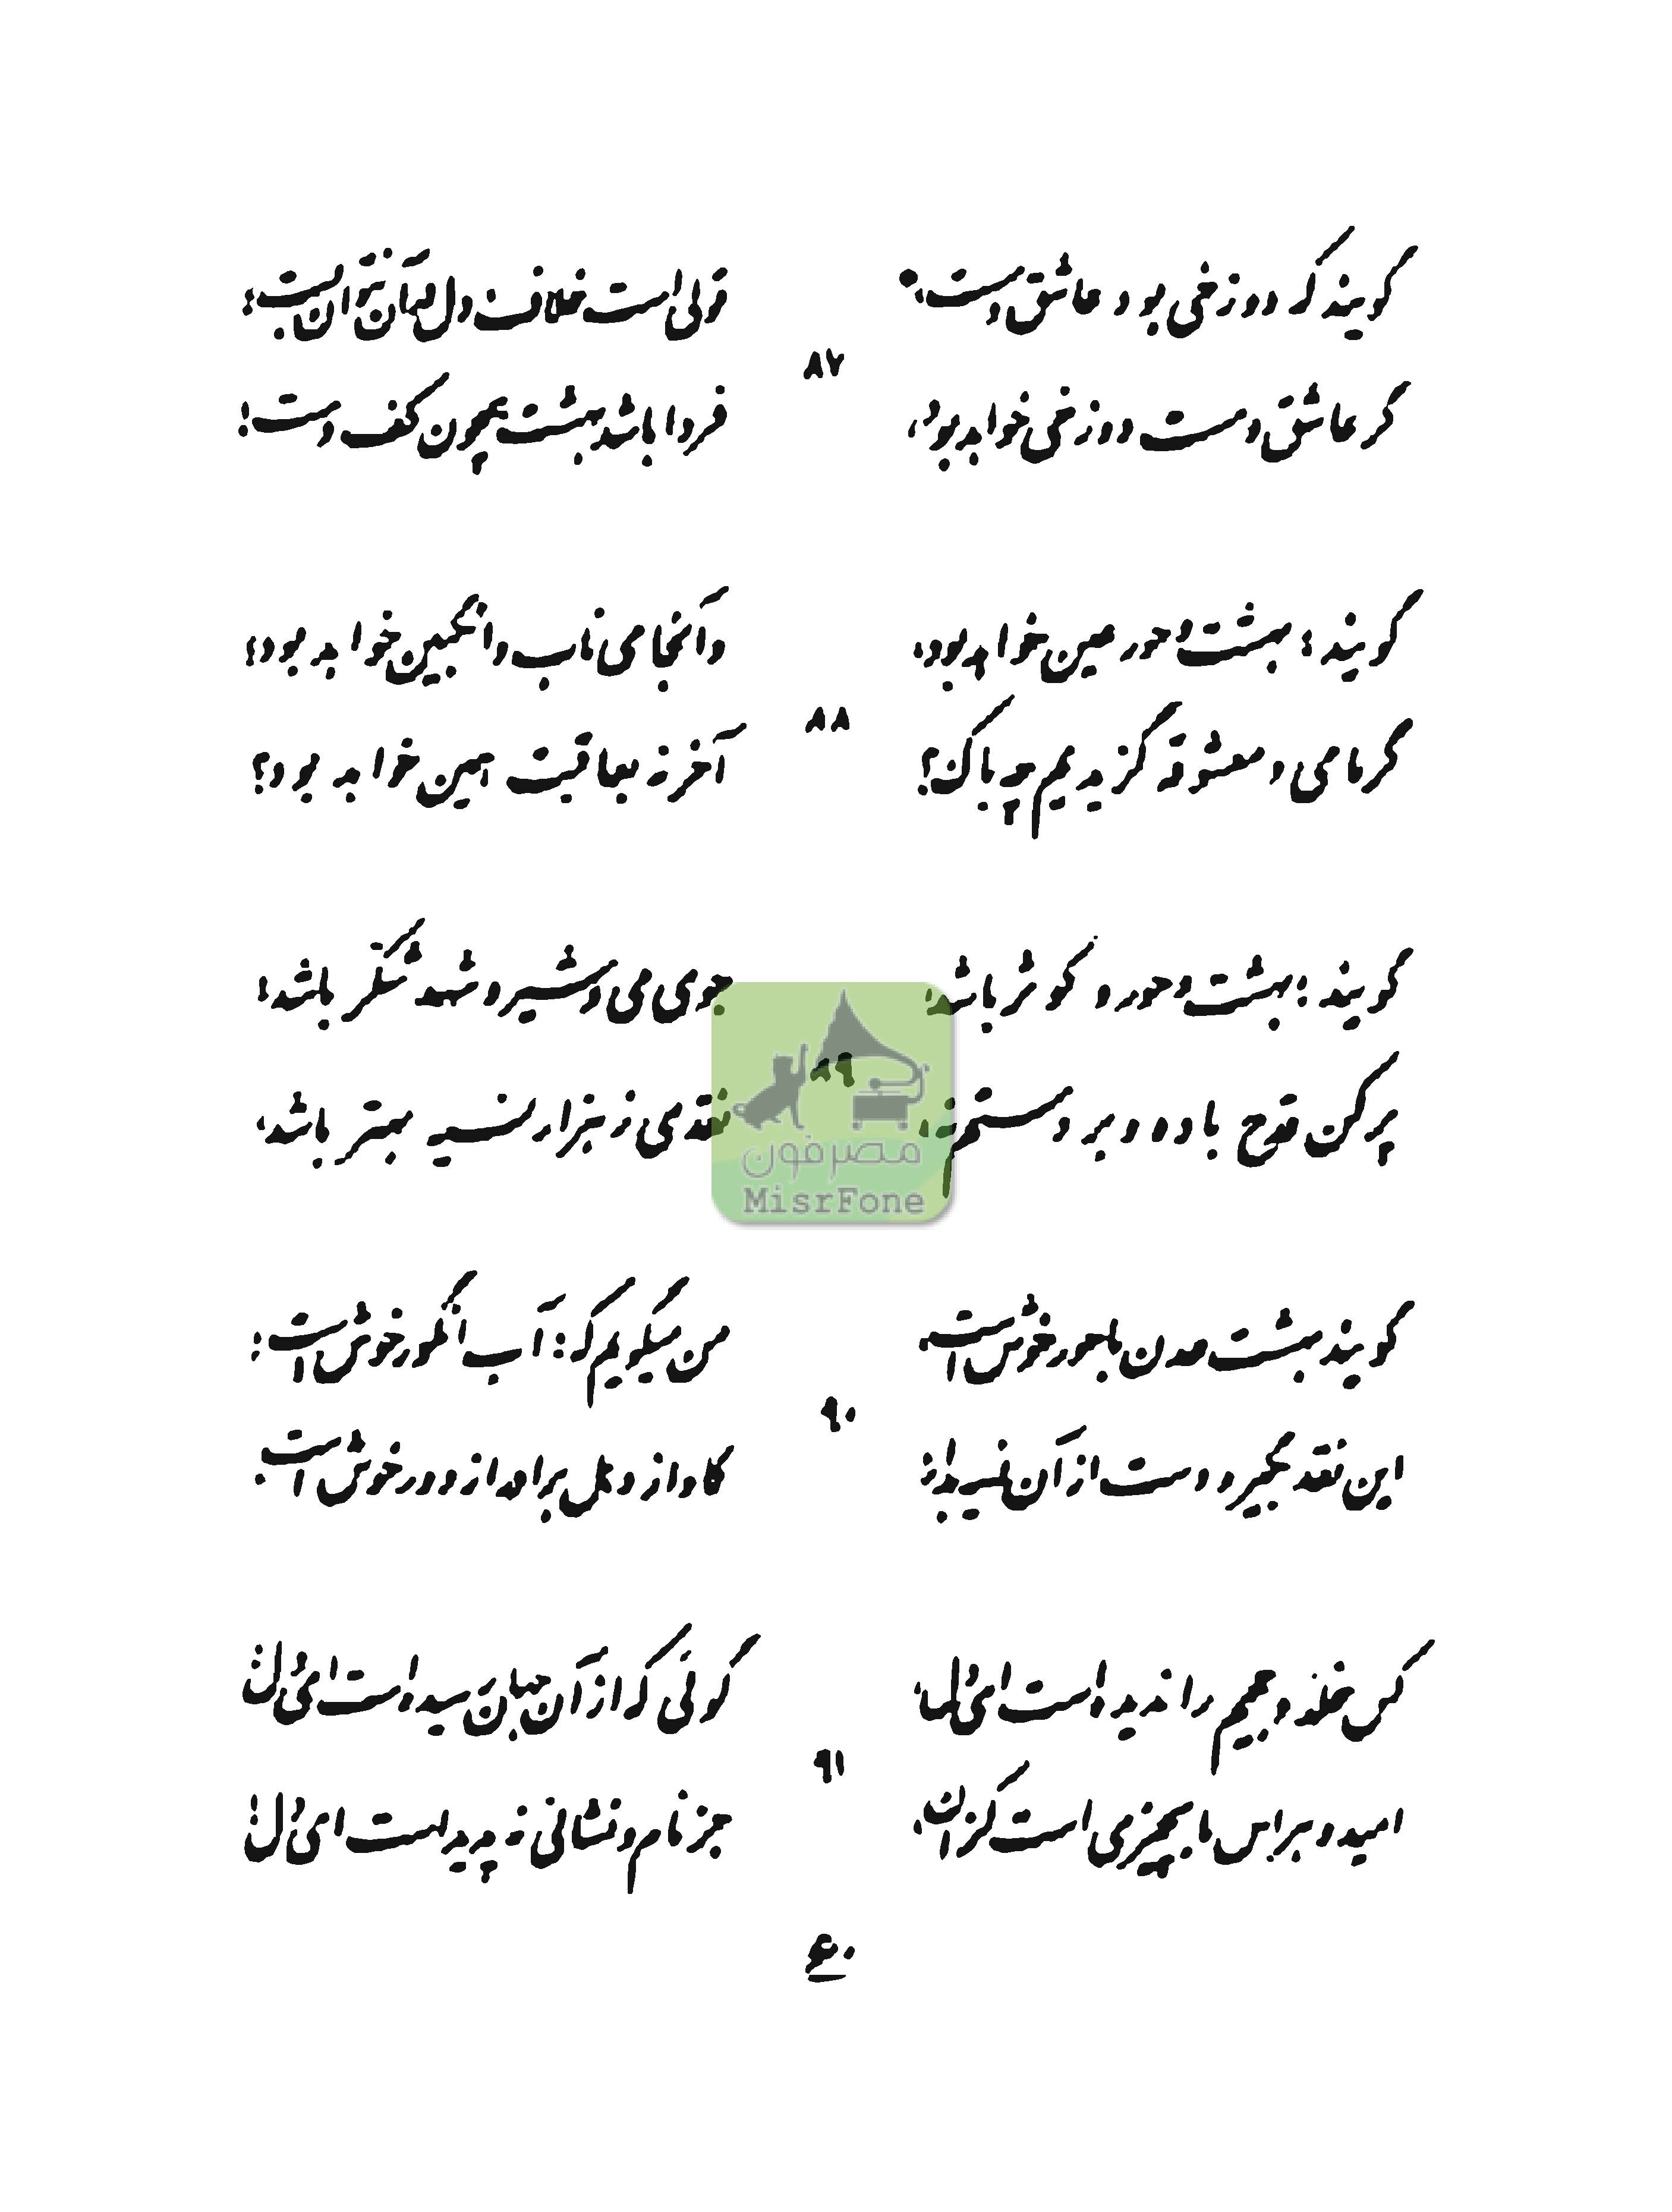 گویند که دوزخی بود عاشق و مست، قولی است خلاف دل در آن نتوان بست؛
۸۷
گر عاشق و مست دوزخی خواهد بود، فردا باشد بهشت همچون کف دست!
گویند: بهشت و حور عین خواهد بود، وآنجا می ناب و انگبین خواهد بود؛
۸۸
گر ما می و معشوقه گزیدیم چه باک؟ آخر نه بعاقبت همین خواهد بود؟
گویند: بهشت و حور و کوثر باشد، جوی می و شیر و شهد و شکر باشد؛
۸۹
پر کن قدح باده و بر دستم نه، نقدی ز هزار نسیه بهتر باشد،
گویند بهشت عدن با حور خوش است، من میگویم که: آب انگور خوش است؛
۹۰
این نقد بگیر و دست از آن نسیه بدار، کاواز دهل برادر از دور خوش است.
کس خلد و جحیم را ندیده است ای دل، گوئی که از آن جهان رسیده است ای دل؛
۹۱
امید و هراس ما بچیزی است کزان، جز نام و نشانی نه پدید است ای دل!
۶۰
مصرفون
MisrFone